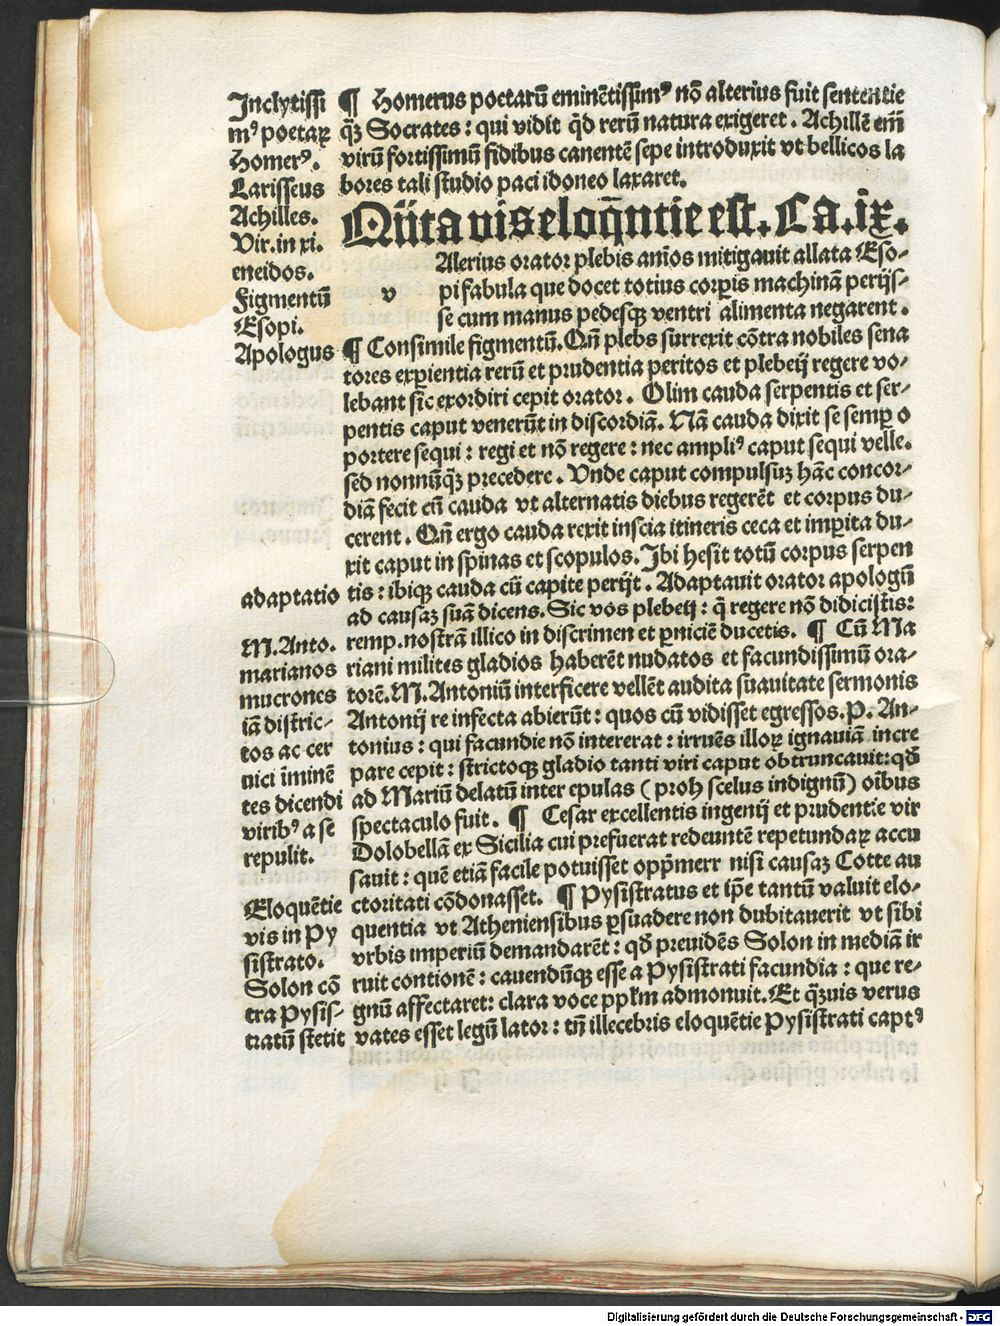 Inclytissi
mꝰ poetaꝝ
Homerꝰ.
Larisseus
Achilles.
Vir.in xi.
eneidos.
Figmentū
Esopi.
Apologus
adaptatio
M.Anto.
marianos
mucrones
iā distric-
tos ac cer
uici īminē
tes dicendi
viribꝰ a se
repulit.
Eloquētie
vis in Py
sistrato.
Solon cō
tra Pysis-
tratū stetit
¶ Homerus poetarū eminētissimꝰ nō alterius fuit sententie
q̄ꝫ Socrates: qui vidit qd̄ rerū natura exigeret. Achillē em̄
virū fortissimū fidibus canentē sepe introduxit vt bellicos la
bores tali studio paci idoneo laxaret.
Qūta vis eloq̄ntie est. Ca.ix.
v
Alerius orator plebis anīos mitigauit allata Eso-
pi fabula que docet totius corꝑis machinā perijs-
se cum manus pedesqꝫ ventri alimenta negarent.
¶ Consimile figmentū. Qn̄ plebs surrexit cōtra nobiles sena
tores exꝑientia rerū et prudentia peritos et plebeij regere vo-
lebant sic exordiri cepit orator. Olim cauda serpentis et ser-
pentis caput venerūt in discordiā. Nā cauda dixit se semꝑ o
portere sequi: regi et nō regere: nec ampliꝰ caput sequi velle.
sed nonnūqꝫ precedere. Vnde caput compulsuꝫ hāc concor-
diā fecit cū cauda vt alternatis diebus regerēt et corpus du-
cerent. Qn̄ ergo cauda rexit inscia itineris ceca et imꝑita du-
xit caput in spinas et scopulos. Ibi hesit totū corpus serpen
tis: ibiqꝫ cauda cū capite perijt. Adaptauit orator apologū
ad causaꝫ suā dicens. Sic vos plebeij: q̄ regere nō didicistis:
remp.nostrā illico in discrimen et ꝑniciē ducetis. ¶ Cū Ma
riani milites gladios haberēt nudatos et facundissimū ora-
torē. M.Antoniū interficere vellēt audita suauitate sermonis
Antonij re infecta abierūt: quos cū vidisset egressos. P. An-
tonius: qui facundie nō intererat: irruēs illoꝝ ignauiā incre
pare cepit: strictoqꝫ gladio tanti viri caput obtruncauit: qd̄
ad Mariū delatū inter epulas (proh scelus indignū) oībus
spectaculo fuit. ¶ Cesar excellentis ingenij et prudentie vir
Dolobellā ex Sicilia cui prefuerat redeuntē repetundaꝝ accu
sauit: quē etiā facile potuisset opp̄merr nisi causaꝫ Cotte au
ctoritati cōdonasset. ¶ Pysistratus et ip̄e tantū valuit elo-
quentia vt Atheniensibus ꝑsuadere non dubitauerit vt sibi
vrbis imperiū demandarēt: qd̄ preuidēs Solon in mediā ir
ruit contionē: cauendūqꝫ esse a Pysistrati facundia: que re-
gnū affectaret: clara voce ppl̄m admonuit. Et q̄ꝫuis verus
vates esset legū lator: tn̄ illecebris eloquētie Pysistrati captꝰ
Digitalisierung gefördert durch die Deutsche Forschungsgemeinschaft - DFG